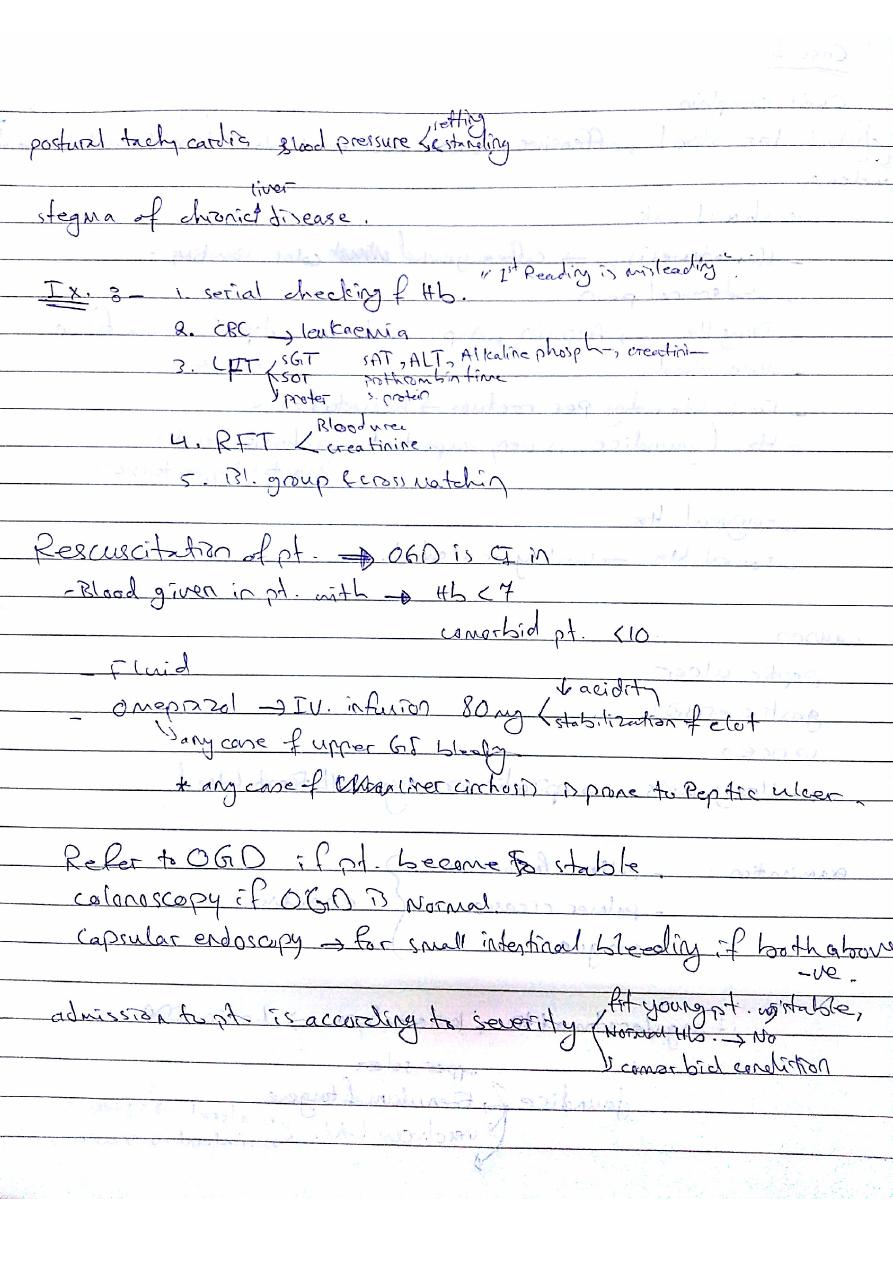 postural tachycardia Blood pressure < setting & standing
stegma of chronic liver disease.
Ix. :- 1. serial checking of Hb. "1st Reading is misleading".
2. CBC → leukaemia
3. LFT < SGT SOT proter SAT, ALT, Alkaline phosph-, creatini- prothrombin time s. protein
4. RFT < Blood urea creatinine.
5. Bl. group & cross matching
Rescuscitation of pt. ⇒ OGD is CI in
- Blood given in pt. with → Hb < 7
comorbid pt. < 10
- Fluid
- omeprazol → IV. infusion 80 mg < ↓ acidity stabilization of clot
↳ any case of upper GI bleeding
* any case of liver cirrhosis is prone to Peptic ulcer.
Refer to OGD if pt. become stable.
colonoscopy if OGD is Normal.
capsular endoscopy → for small intestinal bleeding if both above
-ve.
admission to pt. is according to severity < fit young pt. stable,
Normal Hb. → No
comorbid condition